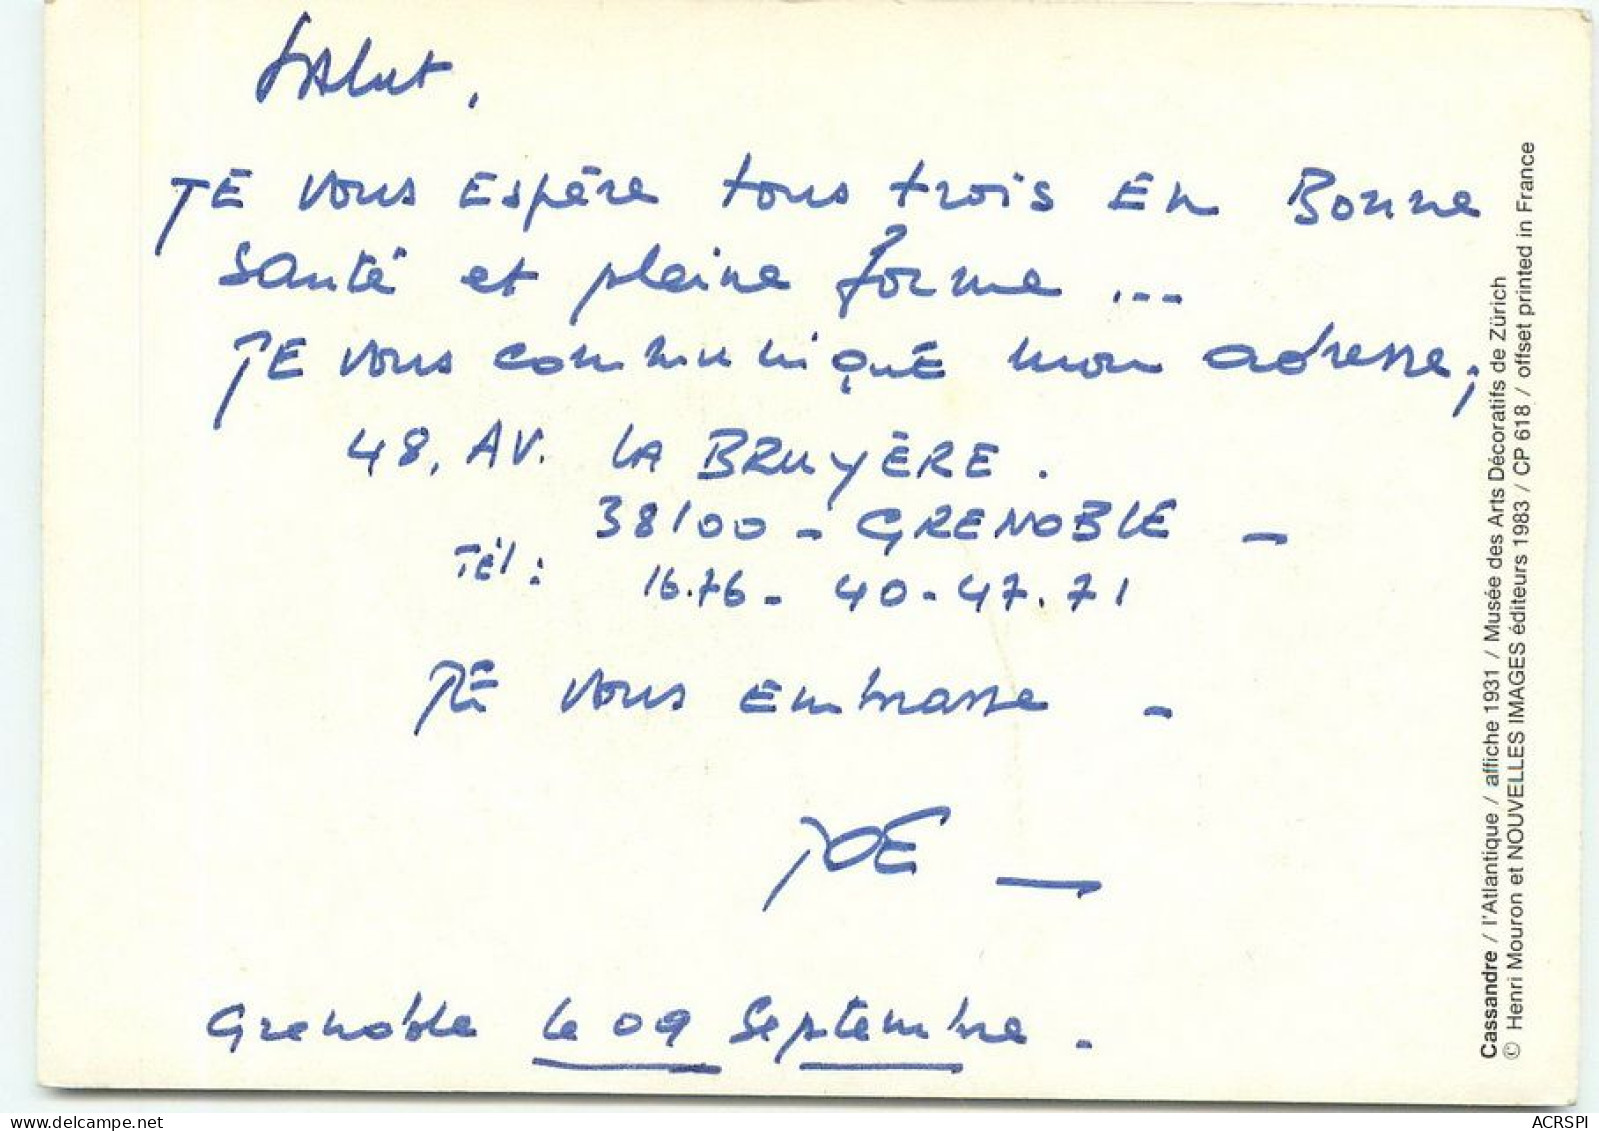 Salut,
JE vous Espère tous trois En Bonne
santé et pleine forme ...
JE vous communique mon adresse;
48, AV. LA BRUYÈRE.
38100 - GRENOBLE -
Tél: 16.76 - 40-47.71
JE vous Embrasse -
JOE
Grenoble le 09 Septembre.
Cassandre / l'Atlantique / affiche 1931 / Musée des Arts Décoratifs de Zürich
© Henri Mouron et NOUVELLES IMAGES éditeurs 1983 / CP 618 / offset printed in France
delcampe.net
ACRSPI